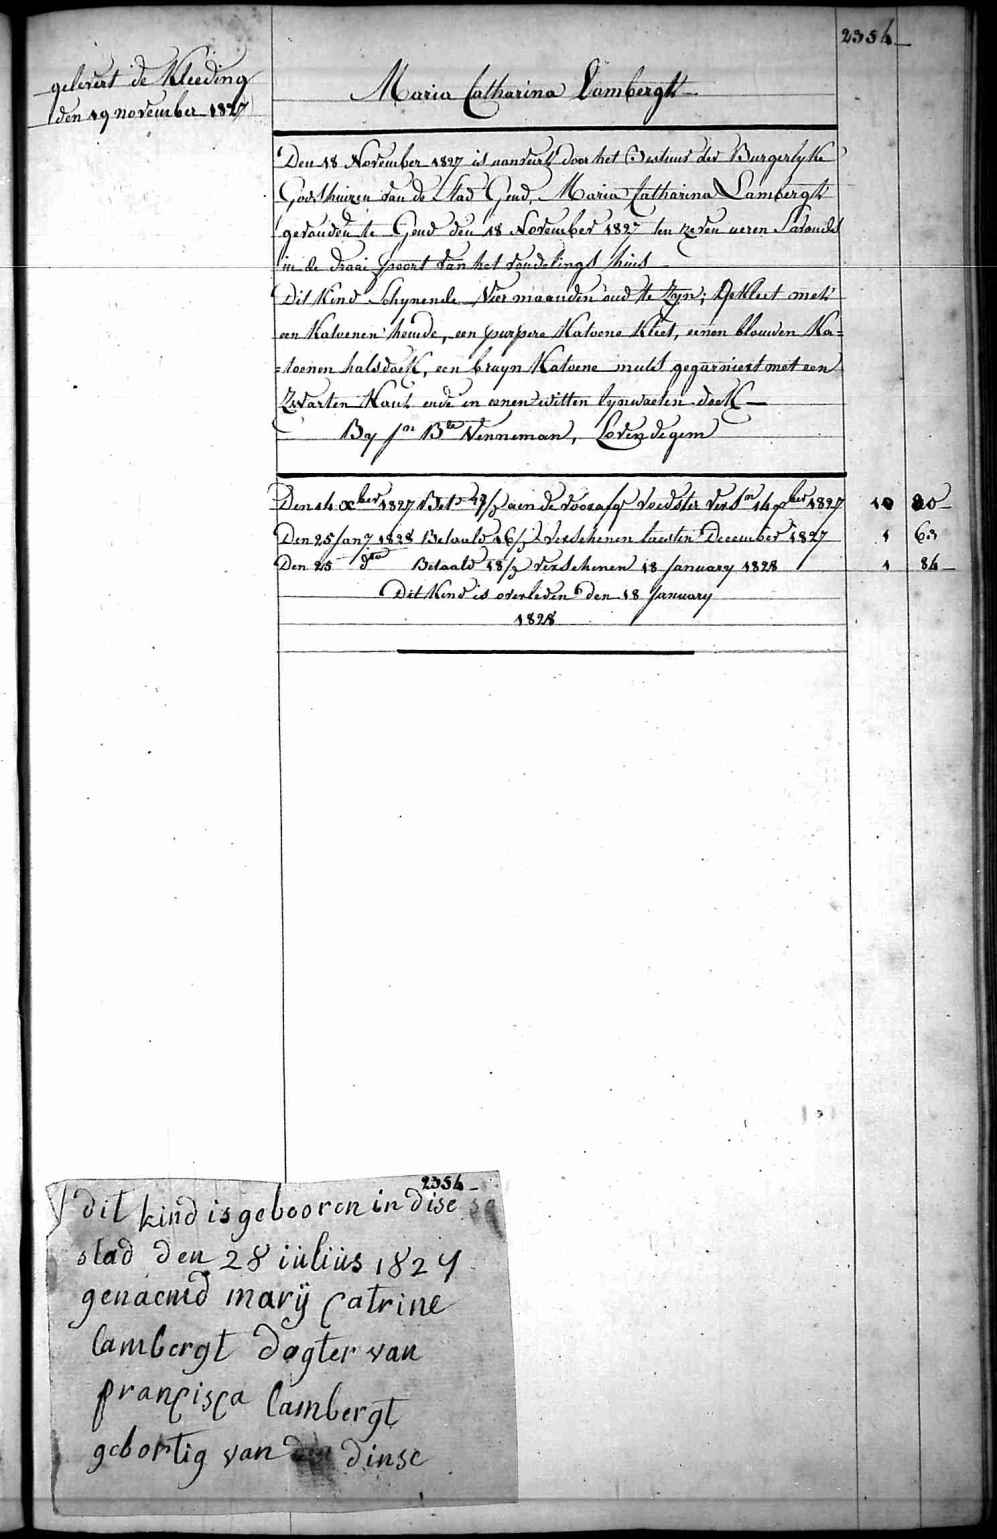 2354
gelevert de Kleeding
den 19 november 1827
Maria Catharina Lambergt
Den 18 November 1827 is aanveirt door het Bestuur der Burgerlyke
Godshuizen van de Stad Gend, Maria Catharina Lambergt
gevonden te Gend den 18 November 1827 ten zeven ueren s'avonds
in de draai poort van het vondelings huis
Dit Kind Schynende Vier maanden oud te zyn; Gekleet met
een Katoenen hemde, een purpere Katoene Kleet, eenen blauwen Ka=
=toenen halsdoek, een bruyn Katoene muts gegarniert met een
zwarten Kant ende in eenen witten lynwaeten doek
By Jn Bte Venneman, Lovendegem
Den 14 xber 1827 Bet. aen de voedster 14 xber 1827 10 20
Den 25 Jany 1828 Betaald 16/3 verschenen laesten December 1827 1 63
Den 25 dto Betaald 18/3 verschenen 18 January 1828 1 84
Dit Kind is overleden den 18 January
1828
2354
dit kind is gebooren in dise
stad den 28 iulius 1827
genaemd marij catrine
lambergt dogter van
francisca lambergt
gebortig van dinse